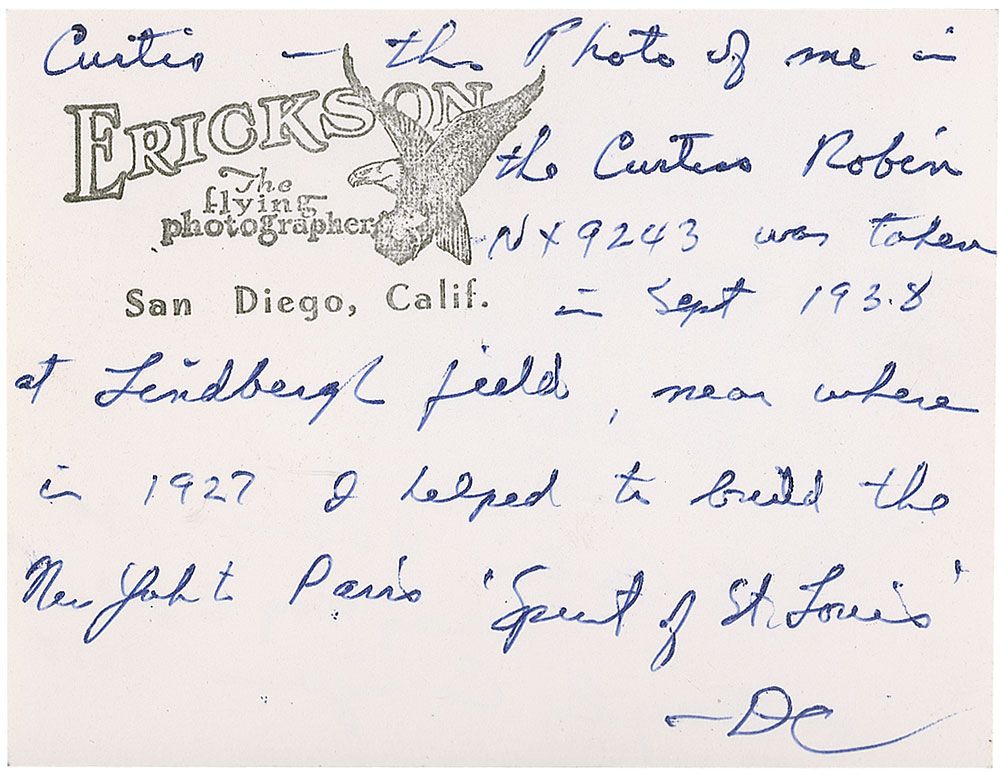 Curtis – the Photo of me in
ERICKSON
The
flying
photographer
San Diego, Calif.
the Curtiss Robin
NX9243 was taken
in Sept 1938
at Lindbergh field, near where
in 1927 I helped to build the
New York to Paris 'Spirit of St. Louis'
– DC